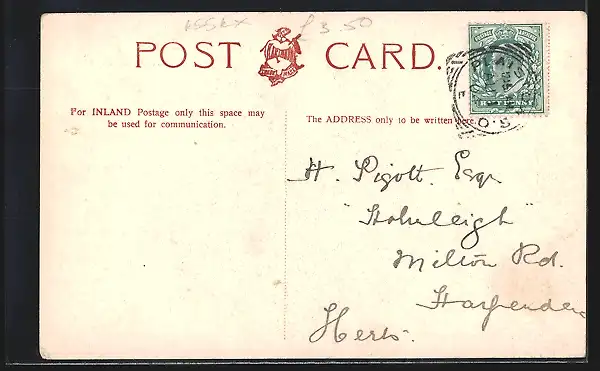 ESSEX £3.50
POST CARD.
For INLAND Postage only this space may
be used for communication.
The ADDRESS only to be written here.
HALFPENNY
S.O
H. Pigott. Esqr
"Stokeleigh"
Milton Rd.
Harpenden
Herts.